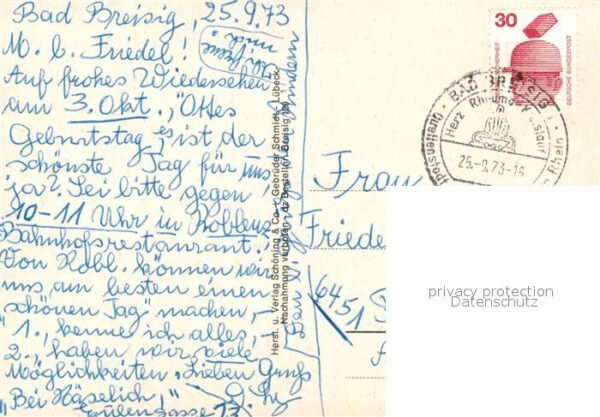 Bad Breisig, 25.9.73
M. l. Friedel!
Auf frohes Wiedersehen
am 3. Okt., "Ottes
Geburtstag, es ist der
schönste Tag für uns
ja? Sei bitte gegen
10-11 Uhr in Koblenz
Bahnhofsrestaurant.
Von Kobl. können wir
uns am besten einen
schönen Tag" machen,-
1., kenne ich alles,-
2., haben wir viele
Möglichkeiten. Lieben Gruß
"Bei Häselich,"
Eulengasse 13.
Herst. u. Verlag Schöning & Co + Gebrüder Schmidt, Lübeck
Nachahmung verboten
Bestellnr. Breisig
30
DEUTSCHE BUNDESPOST
BAD BREISIG 1
Herz Rheuma Kreislauf
Quellenstadt
Rhein
25.-9.73-16
Frau
Friede
6451
privacy protection
Datenschutz